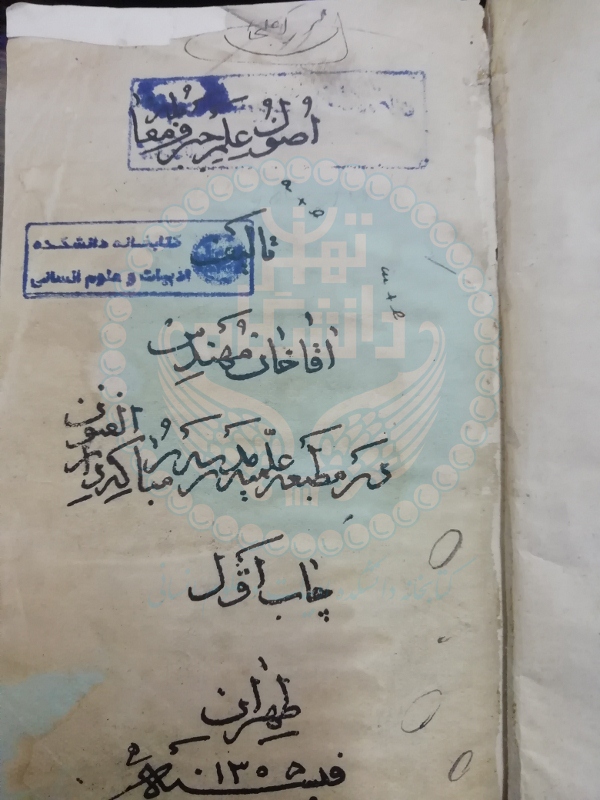 اصول علم جبر و مقا
تألیف
کتابخانه دانشکده
ادبیات و علوم انسانی
اقاخان مهندس
در مطبعه علمیه مدرسه مبارکه دار الفنون
چاپ اوّل
طهران
فی سنه ۱۳۰۵